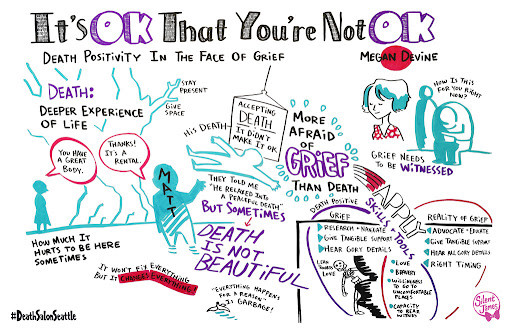 It's OK That You're Not OK
Death Positivity In The Face Of Grief
Megan Devine
Death:
Deeper Experience
Of Life
Stay
Present
Give
Space
You have
a great
body.
Thanks!
It's a
rental.
How much it
hurts to be here
sometimes
Matt
His Death
Accepting
Death
It didn't
make it ok
They told me
"He relaxed into
a peaceful death"
But sometimes
Death
is not
beautiful
It won't fix everything
but it changes everything!
"Everything happens
for a reason"
is garbage!
More
Afraid
of
Grief
Than Death
How is this
for you right
now?
Grief needs
to be witnessed
Apply
Skills + Tools
Death Positive
Grief
Research + Navigate
Give tangible support
Hear gory details
Lean
towards
love
Love
Bravery
Willingness
to go to
uncomfortable
places
Capacity
to bear
witness
Reality of Grief
Advocate + Educate
Give tangible support
Hear all gory details
Right timing
#DeathSalonSeattle